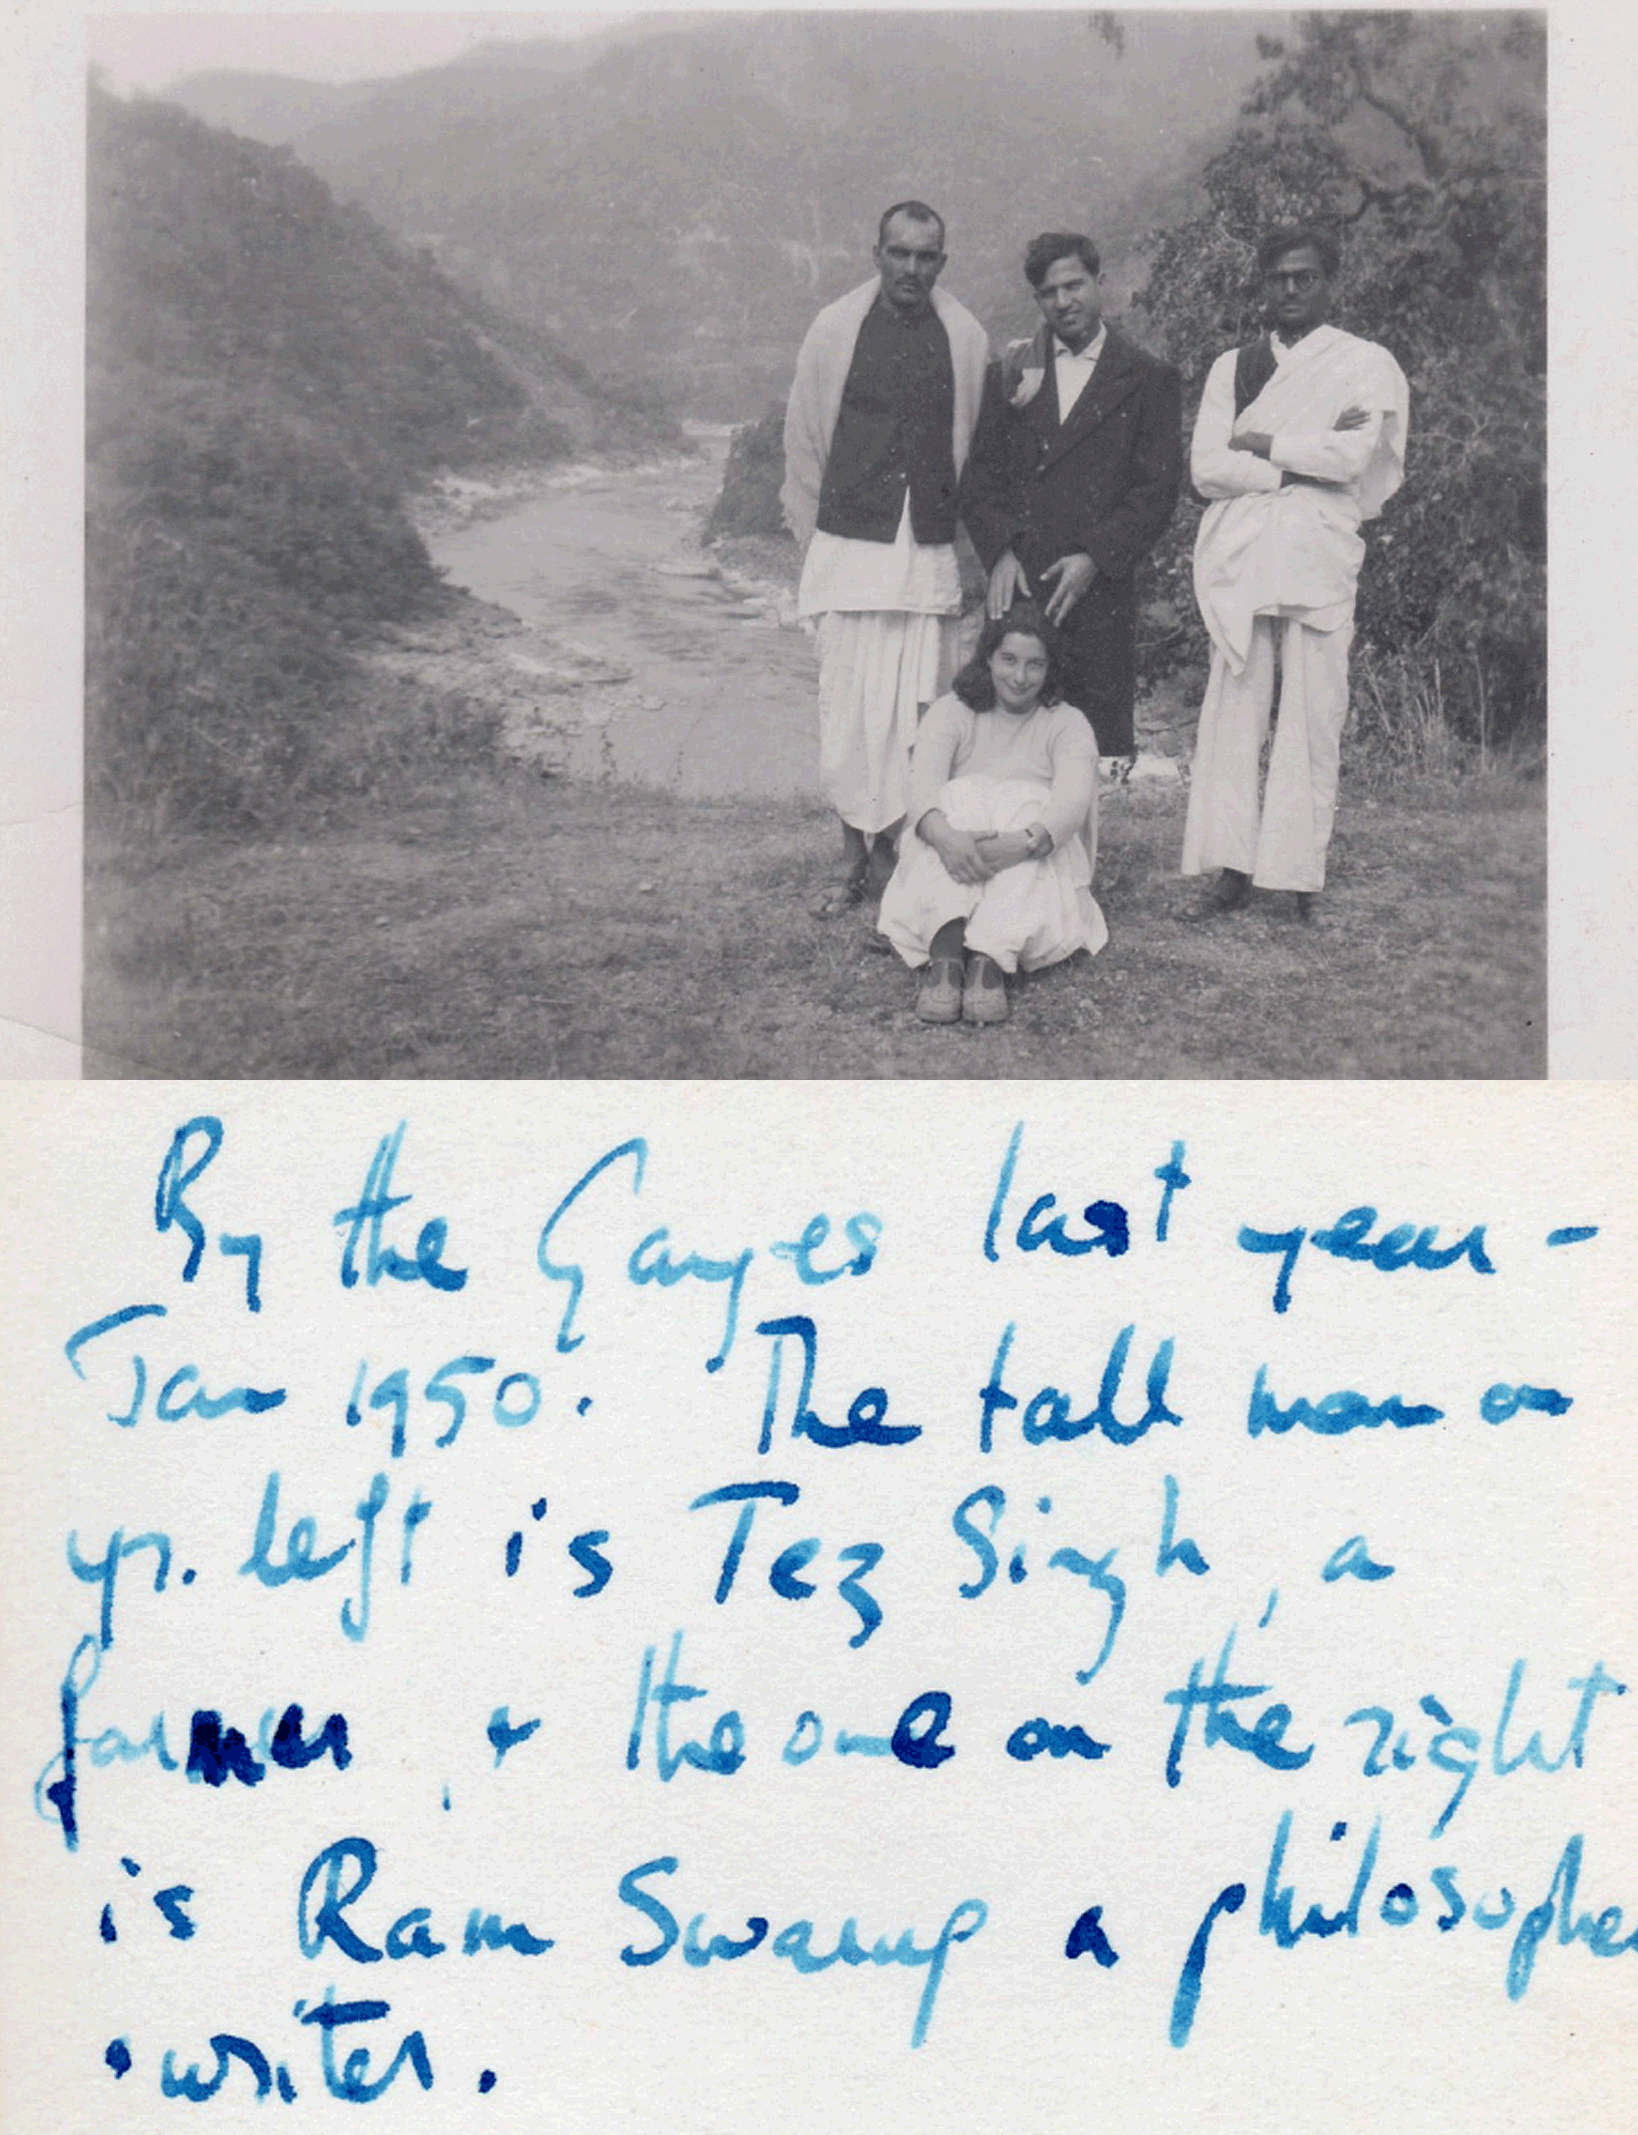 By the Ganges last year -
Jan 1950. The tall man on
yr. left is Tez Singh, a
farmer, + the one on the right
is Ram Swarup a philosopher
writer.